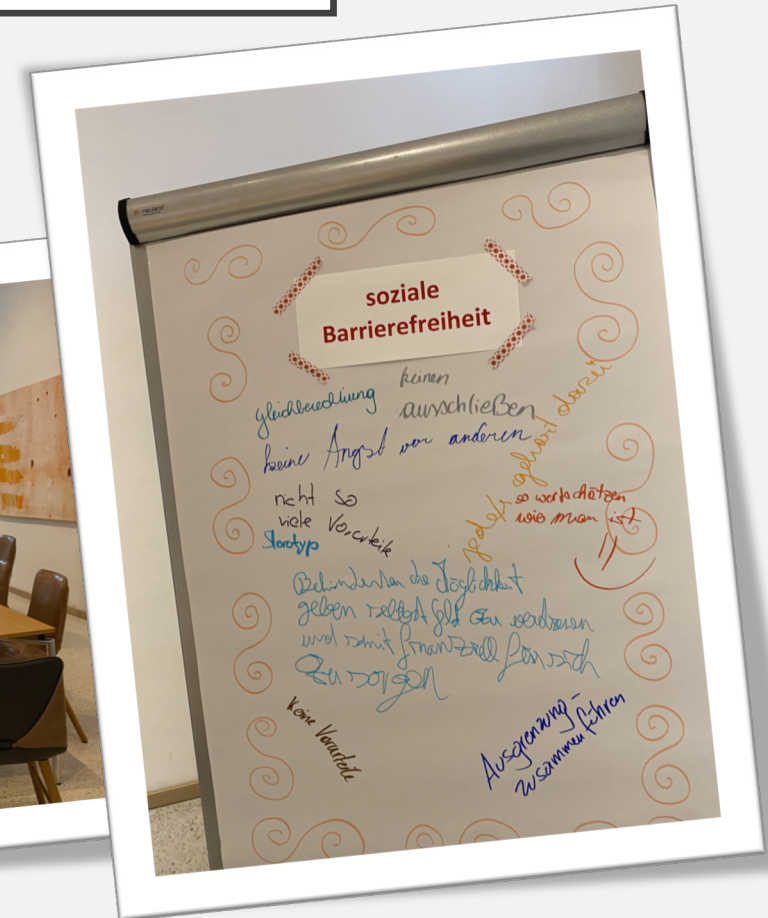 neuland
soziale
Barrierefreiheit
gleichberechtiung
keinen
ausschließen
keine Angst vor anderen
jede/r gehört dazu
nicht so
viele Vorurteile
Starotyp
so wertschätzen
wie man ist
Behinderten die Möglichkeit
geben selbst Geld zu verdienen
und somit finanziell für sich
zu sorgen
keine Vorurteile
Ausgrenzung -
zusammen führen